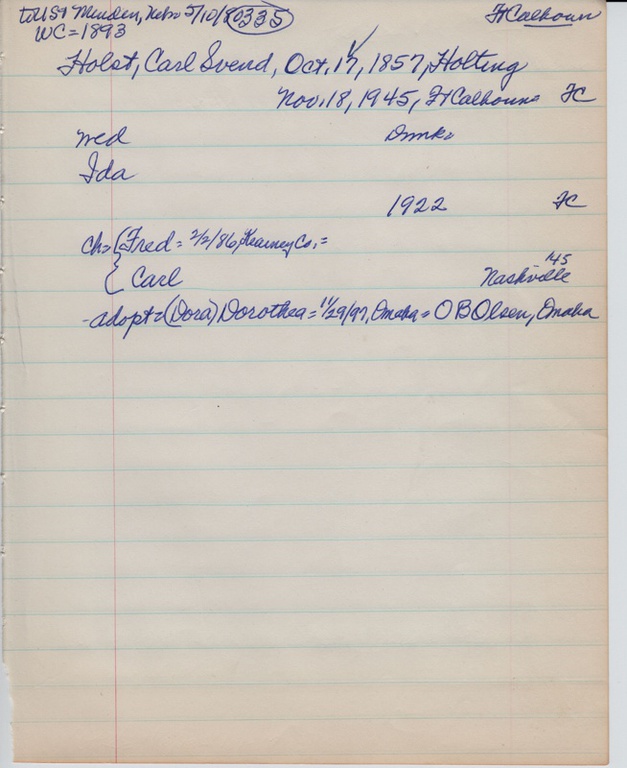 to US Minden, Nebr 5/10/80 335 Ft Calhoun
WC = 1893
Holst, Carl Svend, Oct. 17, 1857, Holting
Nov. 18, 1945, Ft Calhoun = FC
wed Dnmk =
Ida
1922 FC
ch = { Fred = 2/2/86, Kearney Co. =
'45
{ Carl Nashville
- adopt = (Dora) Dorothea = 11/29/97, Omaha = O B Olsen, Omaha